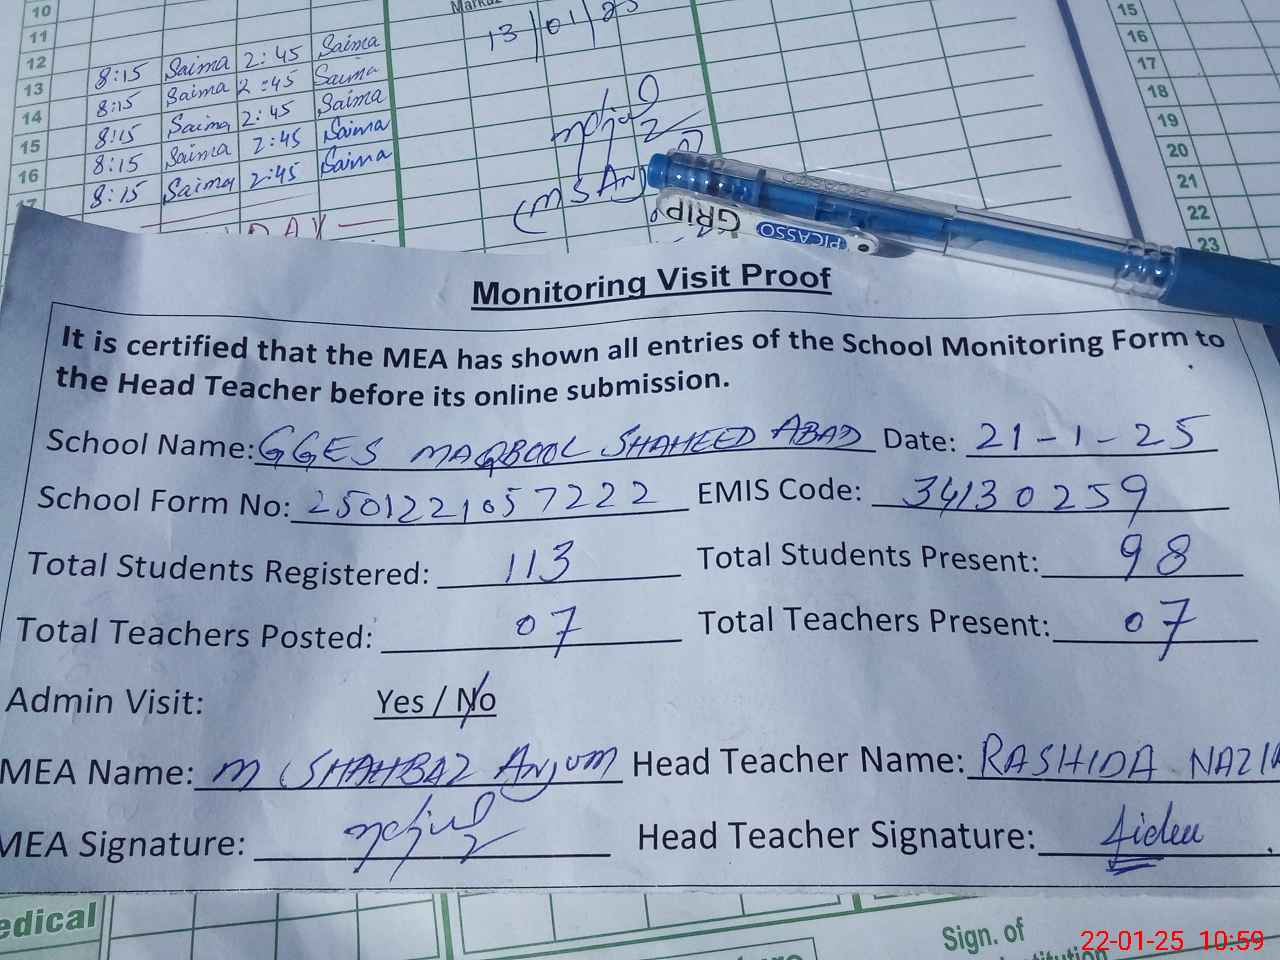 10
11
12
13
14
15
16
17
8:15 Saima 2:45 Saima
8:15 Saima 2:45 Saima
8:15 Saima 2:45 Saima
8:15 Saima 2:45 Saima
8:15 Saima 2:45 Saima
13/01/25
15
16
17
18
19
20
21
22
23
PICASSO
GRIP
Monitoring Visit Proof
It is certified that the MEA has shown all entries of the School Monitoring Form to
the Head Teacher before its online submission.
School Name: GGES MAQBOOL SHAHEED ABAD Date: 21-1-25
School Form No: 2501221057222 EMIS Code: 34130259
Total Students Registered: 113 Total Students Present: 98
Total Teachers Posted: 07 Total Teachers Present: 07
Admin Visit: Yes / No
MEA Name: M SHAHBAZ ANJUM Head Teacher Name: RASHIDA NAZI
MEA Signature: Head Teacher Signature:
edical
Sign. of
22-01-25 10:59